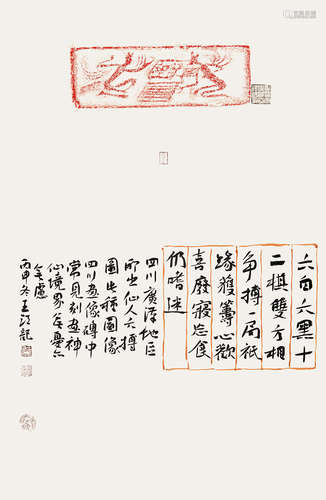 六白六黑十
二棋雙方相
争搏一局祇
緣獲籌心歡
喜廢寢忘食
仍嗜迷
四川廣漢地區
所出仙人六博
圖此種圖像
四川画像磚中
常見刻画神
仙境界無憂亦
無慮
丙申冬王